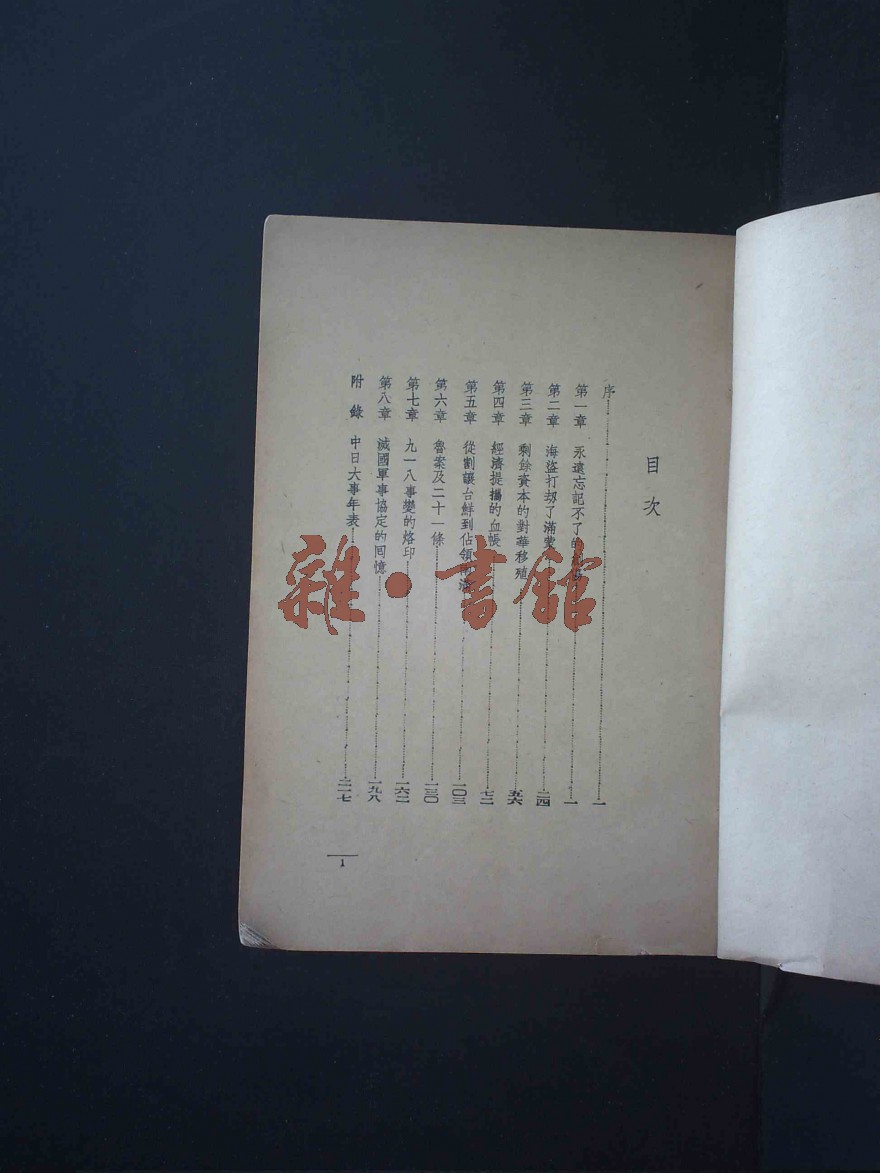 目次
序 一
第一章 永遠忘記不了的 一
第二章 海盜打刼了滿蒙 二四
第三章 剩餘資本的對華移殖 五六
第四章 經濟提攜的血帳 七二
第五章 從割讓台鮮到佔領 一〇三
第六章 魯案及二十一條 一三〇
第七章 九一八事變的烙印 一六二
第八章 滅國軍事協定的回憶 一九八
附錄 中日大事年表 二一七
1
雜·書館